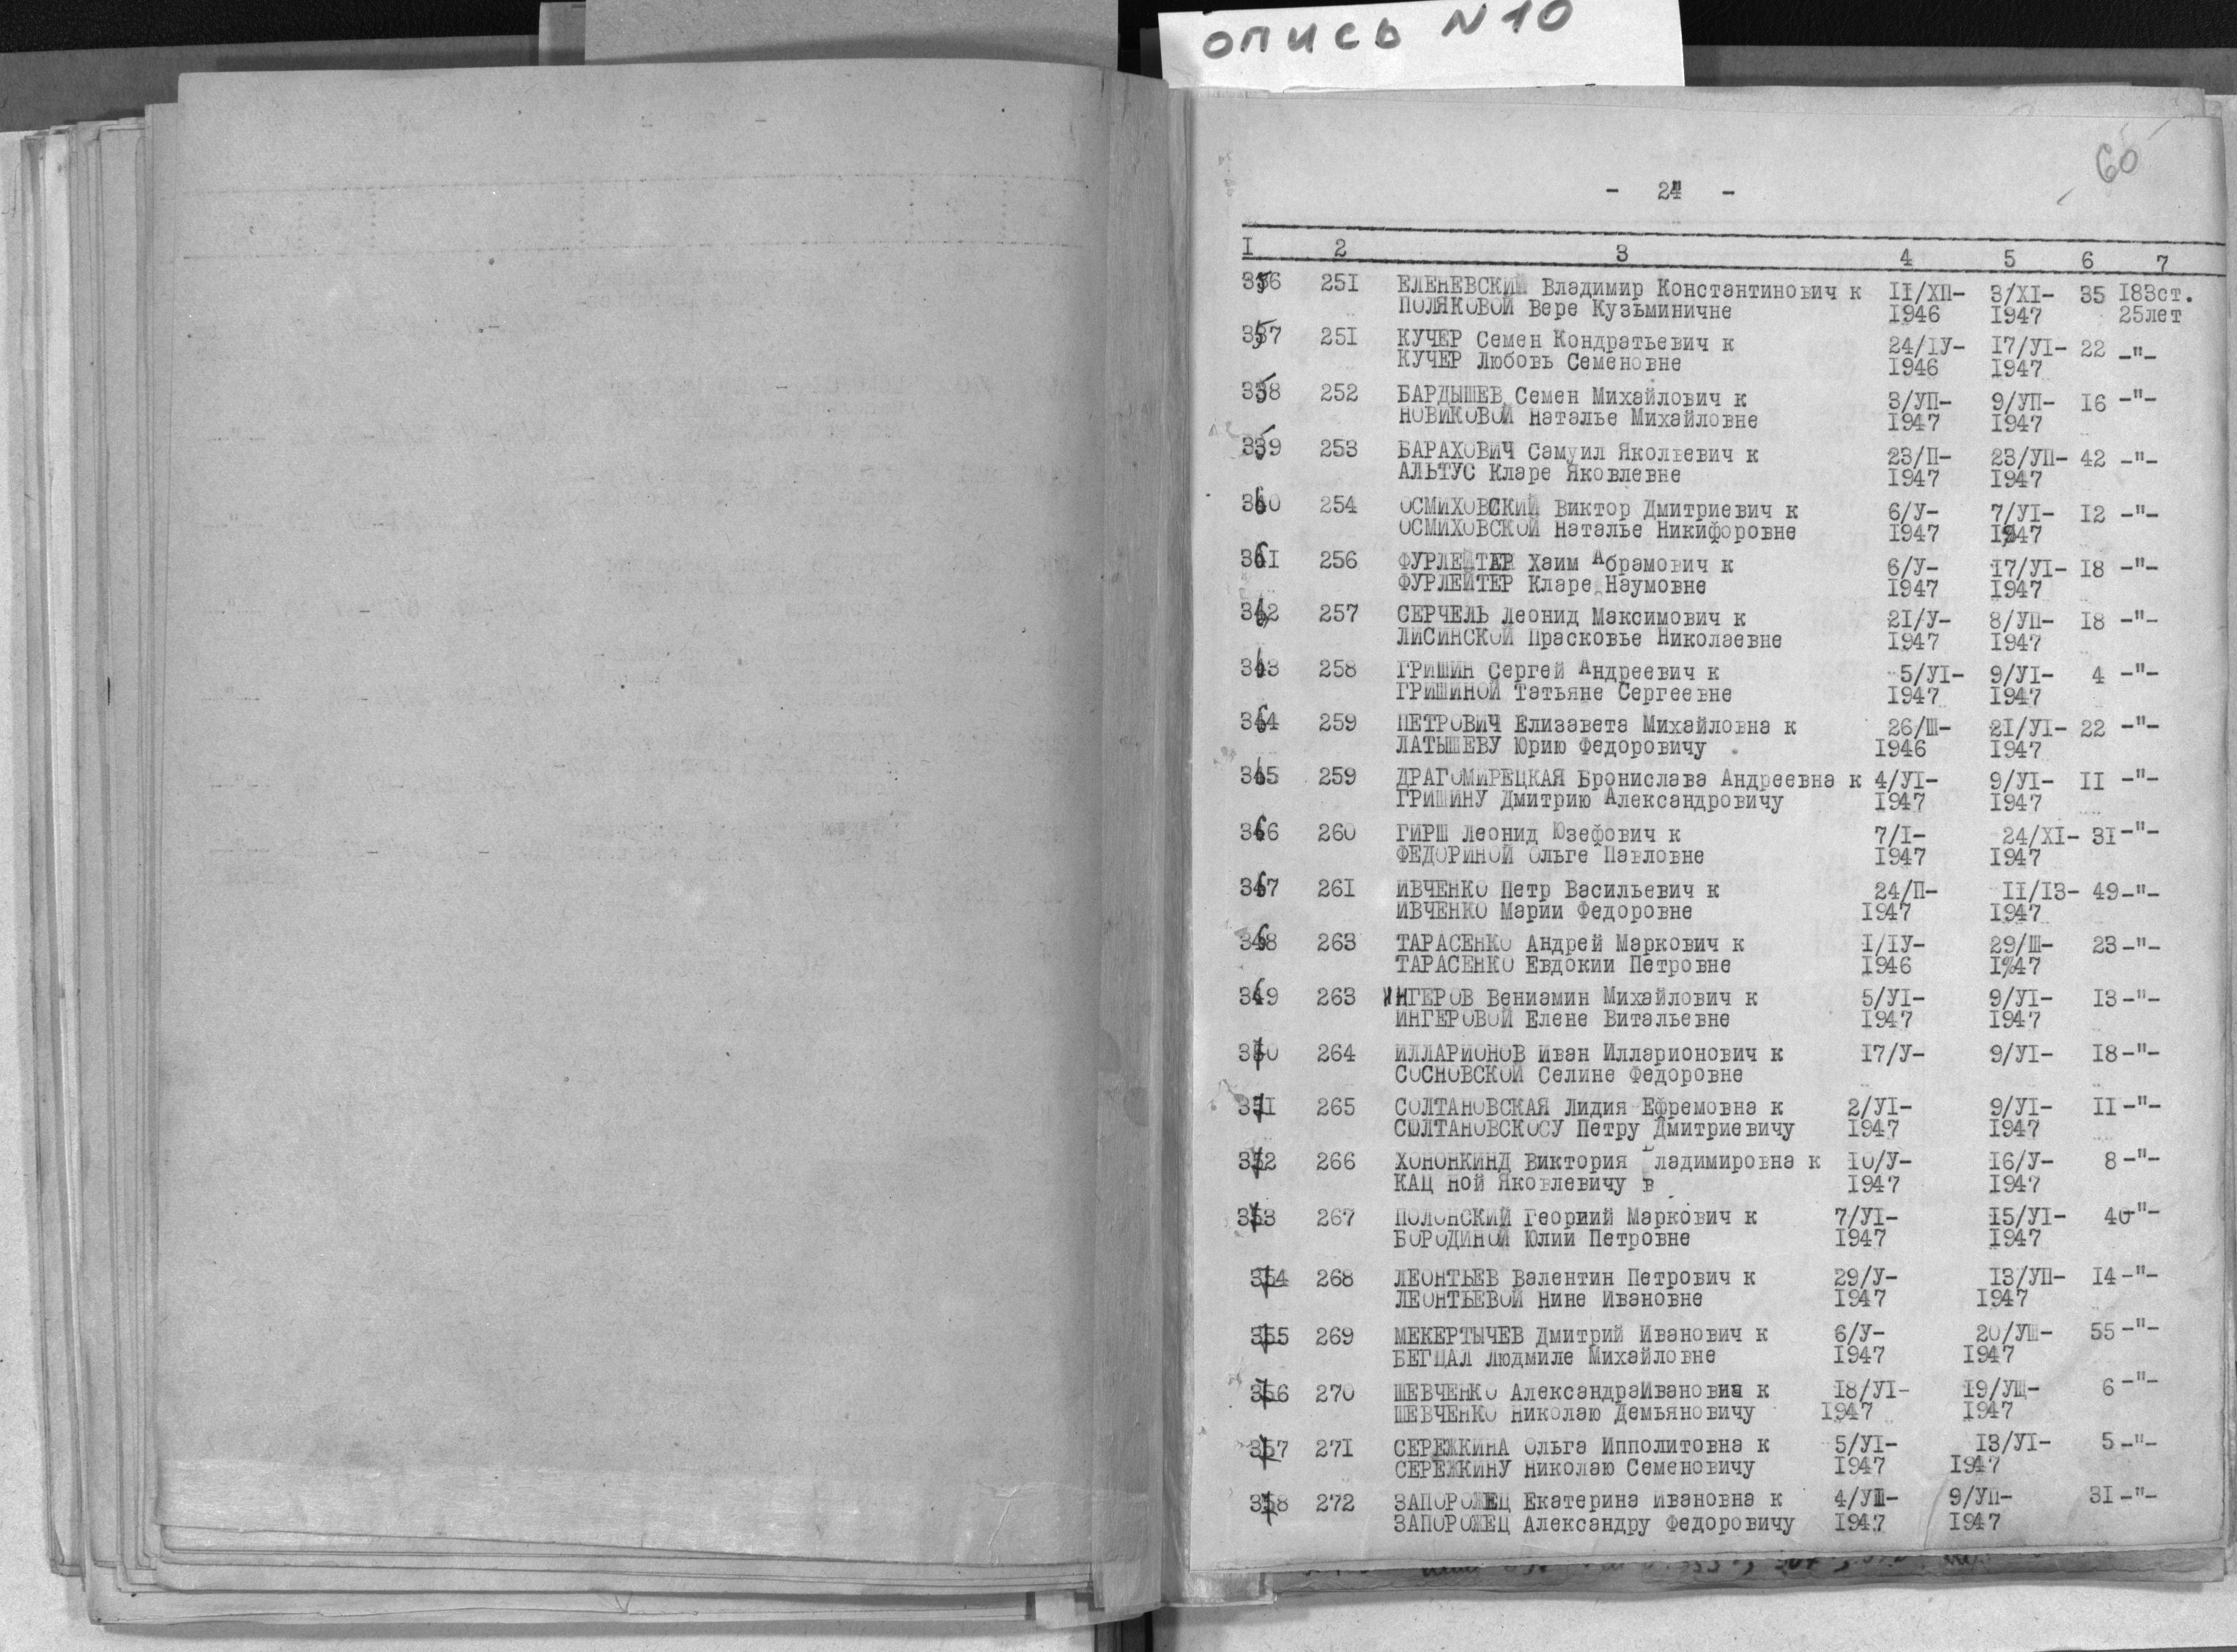 опись N10
60
- 24 -
1 2 3 4 5 6 7
356 251 ЕЛЕНЕВСКИЙ Владимир Константинович к 11/ХП- 3/ХI- 35 183ст.
ПОЛЯКОВОЙ Вере Кузьминичне 1946 1947 25лет
357 251 КУЧЕР Семен Кондратьевич к 24/IУ- 17/УI- 22 -"-
КУЧЕР Любовь Семеновне 1946 1947
358 252 БАРДЫШЕВ Семен Михайлович к 3/УП- 9/УП- 16 -"-
НОВИКОВОЙ Наталье Михайловне 1947 1947
359 253 БАРАХОВИЧ Самуил Яколвевич к 23/П- 23/УП- 42 -"-
АЛЬТУС Кларе Яковлевне 1947 1947
360 254 ОСМИХОВСКИЙ Виктор Дмитриевич к 6/У- 7/УI- 12 -"-
ОСМИХОВСКОЙ Наталье Никифоровне 1947 1947
361 256 ФУРЛЕЙТЕР Хаим Абрамович к 6/У- 17/УI- 18 -"-
ФУРЛЕЙТЕР Кларе Наумовне 1947 1947
362 257 СЕРЧЕЛЬ Леонид Максимович к 21/У- 8/УП- 18 -"-
ЛИСИНСКОЙ Прасковье Николаевне 1947 1947
363 258 ГРИШИН Сергей Андреевич к 5/УI- 9/УI- 4 -"-
ГРИШИНОЙ Татьяне Сергеевне 1947 1947
364 259 ПЕТРОВИЧ Елизавета Михайловна к 26/Ш- 21/УI- 22 -"-
ЛАТЫШЕВУ Юрию Федоровичу 1946 1947
365 259 ДРАГОМИРЕЦКАЯ Бронислава Андреевна к 4/УI- 9/УI- 11 -"-
ГРИШИНУ Дмитрию Александровичу 1947 1947
366 260 ГИРШ Леонид Юзефович к 7/I- 24/ХI- 31 -"-
ФЕДОРИНОЙ Ольге Павловне 1947 1947
367 261 ИВЧЕНКО Петр Васильевич к 24/П- 11/13- 49 -"-
ИВЧЕНКО Марии Федоровне 1947 1947
368 263 ТАРАСЕНКО Андрей Маркович к 1/IУ- 29/Ш- 23 -"-
ТАРАСЕНКО Евдокии Петровне 1946 1947
369 263 ИНГЕРОВ Вениамин Михайлович к 5/УI- 9/УI- 13 -"-
ИНГЕРОВОЙ Елене Витальевне 1947 1947
370 264 ИЛЛАРИОНОВ Иван Илларионович к 17/У- 9/УI- 18 -"-
СОСНОВСКОЙ Селине Федоровне
371 265 СОЛТАНОВСКАЯ Лидия Ефремовна к 2/УI- 9/УI- 11 -"-
СОЛТАНОВСКОСУ Петру Дмитриевичу 1947 1947
372 266 ХОНОНКИНД Виктория ладимировна к 10/У- 16/У- 8 -"-
КАЦ Ной Яковлевичу в 1947 1947
373 267 ПОЛОНСКИЙ Георгий Маркович к 7/УI- 15/УI- 40 -"-
БОРОДИНОЙ Юлии Петровне 1947 1947
374 268 ЛЕОНТЬЕВ Валентин Петрович к 29/У- 13/УП- 14 -"-
ЛЕОНТЬЕВОЙ Нине Ивановне 1947 1947
375 269 МЕКЕРТЫЧЕВ Дмитрий Иванович к 6/У- 20/УШ- 55 -"-
БЕГЦАЛ Людмиле Михайловне 1947 1947
376 270 ШЕВЧЕНКО АлександраИвановна к 18/УI- 19/УШ- 6 -"-
ШЕВЧЕНКО Николаю Демьяновичу 1947 1947
377 271 СЕРЕЖКИНА Ольга Ипполитовна к 5/УI- 13/УI- 5 -"-
СЕРЕЖКИНУ Николаю Семеновичу 1947 1947
378 272 ЗАПОРОЖЕЦ Екатерина Ивановна к 4/УШ- 9/УП- 31 -"-
ЗАПОРОЖЕЦ Александру Федоровичу 1947 1947